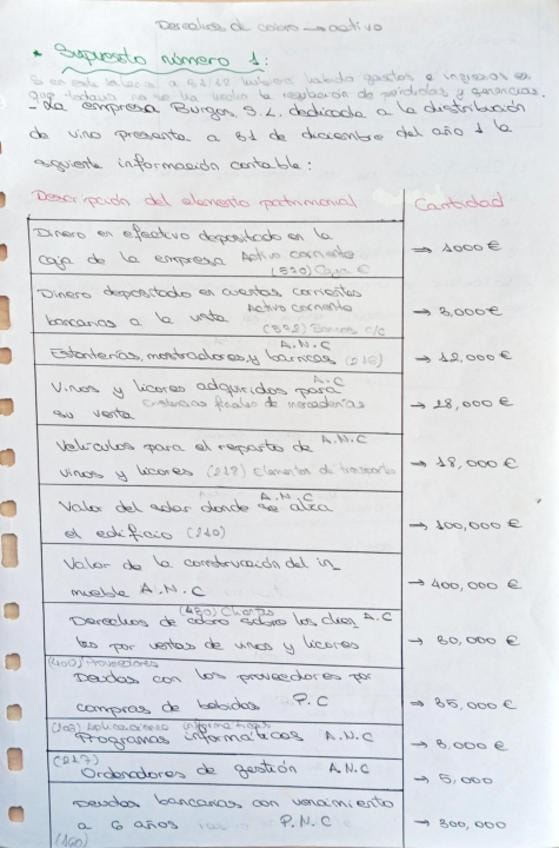 Derechos de cobro → activo
* Supuesto número 1:
Si en este balance a 31/12 hubiera habido gastos e ingresos es
que todavía no se ha hecho la regulación de pérdidas y ganancias.
- La empresa Burgos, S.L. dedicada a la distribución
de vino presenta a 31 de diciembre del año 1 la
siguiente información contable:
Descripción del elemento patrimonial Cantidad
Dinero en efectivo depositado en la
caja de la empresa Activo corriente → 1000 €
(570) Caja €
Dinero depositado en cuentas corrientes
bancarias a la vista Activo corriente → 3,000€
(572) Bancos c/c
A.N.C
Estanterías, mostradores, y barricas (216) → 12,000 €
A.C
Vinos y licores adquiridos para
su venta Existencias finales de mercaderías → 28,000 €
Vehículos para el reparto de A.N.C
vinos y licores (218) Elementos de transporte → 18,000 €
A.N.C
Valor del solar donde se alza
el edificio (210) → 100,000 €
Valor de la construcción del in_
mueble A.N.C → 400,000 €
(430) Clientes
Derechos de cobro sobre los clien A.C
tes por ventas de vinos y licores → 30,000 €
(400) Proveedores
Deudas con los proveedores por
compras de bebidas P.C → 35,000 €
Aplicaciones informáticas
Programas informáticos A.N.C → 3,000 €
(217)
Ordenadores de gestión A.N.C → 5,000
Deudas bancarias con vencimiento
a 6 años P.N.C → 300,000